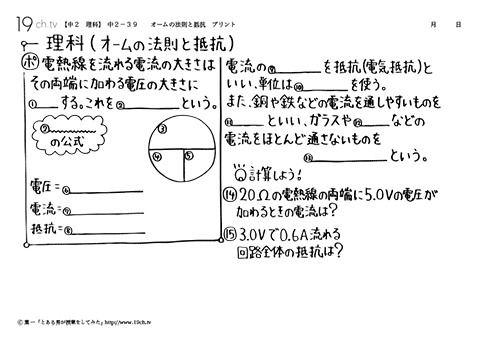 19ch.tv 【中2 理科】 中2-39 オームの法則と抵抗 プリント 月 日
理科(オームの法則と抵抗)
ポ 電熱線を流れる電流の大きさは
その両端に加わる電圧の大きさに
①___する。これを②______という。
②______
の公式
③
④ ⑤
電圧=⑥______
電流=⑦______
抵抗=⑧______
電流の⑨______を抵抗(電気抵抗)と
いい、単位は⑩______を使う。
また、銅や鉄などの電流を通しやすいものを
⑪______といい、ガラスや⑫______などの
電流をほとんど通さないものを
⑬______という。
計算しよう!
⑭ 20Ωの電熱線の両端に5.0Vの電圧が
加わるときの電流は?
⑮ 3.0Vで0.6A流れる
回路全体の抵抗は?
©葉一「とある男が授業をしてみた」http://www.19ch.tv